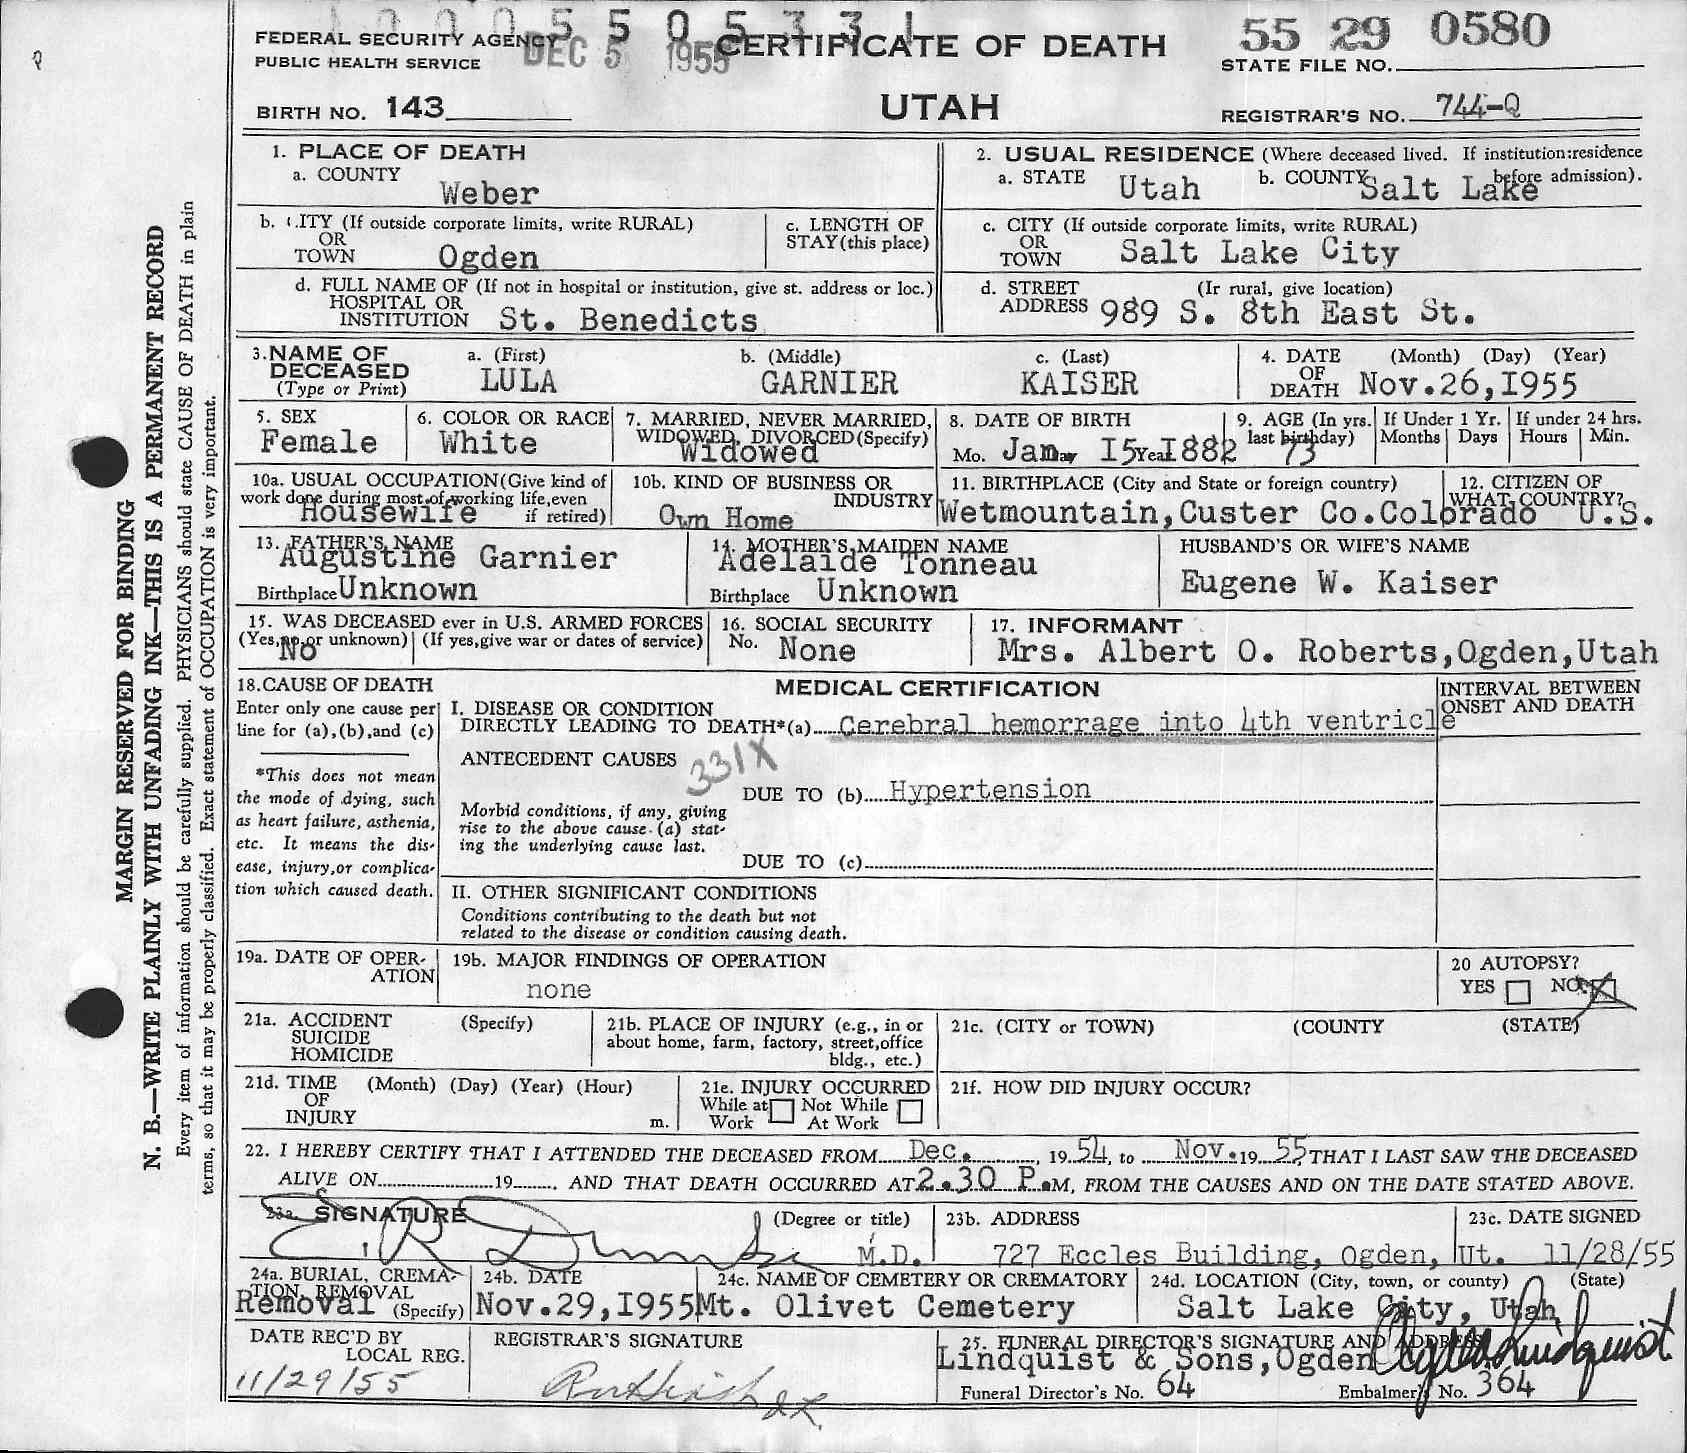 1 0 0 0 5 5 0 5 3 3 1
FEDERAL SECURITY AGENCY
PUBLIC HEALTH SERVICE
DEC 5 1955
CERTIFICATE OF DEATH
55 29 0580
STATE FILE NO.
BIRTH NO. 143
UTAH
REGISTRAR'S NO. 744-Q
1. PLACE OF DEATH
a. COUNTY
Weber
2. USUAL RESIDENCE (Where deceased lived. If institution:residence before admission).
a. STATE Utah b. COUNTY Salt Lake
b. CITY (If outside corporate limits, write RURAL)
OR
TOWN Ogden
c. LENGTH OF
STAY(this place)
c. CITY (If outside corporate limits, write RURAL)
OR
TOWN Salt Lake City
d. FULL NAME OF (If not in hospital or institution, give st. address or loc.)
HOSPITAL OR
INSTITUTION St. Benedicts
d. STREET (Ir rural, give location)
ADDRESS 989 S. 8th East St.
3. NAME OF DECEASED
(Type or Print)
a. (First) LULA
b. (Middle) GARNIER
c. (Last) KAISER
4. DATE OF DEATH (Month) (Day) (Year)
Nov.26,I955
5. SEX
Female
6. COLOR OR RACE
White
7. MARRIED, NEVER MARRIED,
WIDOWED, DIVORCED(Specify)
Widowed
8. DATE OF BIRTH
Mo. Jan. Day I5 Year I882
9. AGE (In yrs. last birthday)
73
If Under 1 Yr.
Months Days
If under 24 hrs.
Hours Min.
10a. USUAL OCCUPATION(Give kind of
work done during most of working life,even
if retired)
Housewife
10b. KIND OF BUSINESS OR
INDUSTRY
Own Home
11. BIRTHPLACE (City and State or foreign country)
Wetmountain,Custer Co.Colorado
12. CITIZEN OF
WHAT COUNTRY?
U.S.
13. FATHER'S NAME
Augustine Garnier
Birthplace Unknown
14. MOTHER'S MAIDEN NAME
Adelaide Tonneau
Birthplace Unknown
HUSBAND'S OR WIFE'S NAME
Eugene W. Kaiser
15. WAS DECEASED ever in U.S. ARMED FORCES
(Yes,no,or unknown) (If yes,give war or dates of service)
No
16. SOCIAL SECURITY
No. None
17. INFORMANT
Mrs. Albert O. Roberts,Ogden,Utah
18.CAUSE OF DEATH
Enter only one cause per
line for (a),(b),and (c)
*This does not mean
the mode of dying, such
as heart failure, asthenia,
etc. It means the dis-
ease, injury,or complica-
tion which caused death.
MEDICAL CERTIFICATION
INTERVAL BETWEEN
ONSET AND DEATH
I. DISEASE OR CONDITION
DIRECTLY LEADING TO DEATH*(a) Cerebral hemorrage into 4th ventricle
ANTECEDENT CAUSES
331X
DUE TO (b) Hypertension
Morbid conditions, if any, giving
rise to the above cause (a) stat-
ing the underlying cause last.
DUE TO (c)
II. OTHER SIGNIFICANT CONDITIONS
Conditions contributing to the death but not
related to the disease or condition causing death.
19a. DATE OF OPER-
ATION
19b. MAJOR FINDINGS OF OPERATION
none
20 AUTOPSY?
YES NO X
21a. ACCIDENT (Specify)
SUICIDE
HOMICIDE
21b. PLACE OF INJURY (e.g., in or
about home, farm, factory, street,office
bldg., etc.)
21c. (CITY or TOWN) (COUNTY (STATE)
21d. TIME (Month) (Day) (Year) (Hour)
OF
INJURY m.
21e. INJURY OCCURRED
While at Not While
Work At Work
21f. HOW DID INJURY OCCUR?
22. I HEREBY CERTIFY THAT I ATTENDED THE DECEASED FROM Dec. , 19 54, to Nov. 19 55, THAT I LAST SAW THE DECEASED
ALIVE ON 19 , AND THAT DEATH OCCURRED AT 2.30 P.M, FROM THE CAUSES AND ON THE DATE STATED ABOVE.
23a. SIGNATURE (Degree or title)
M.D.
23b. ADDRESS
727 Eccles Building, Ogden, Ut.
23c. DATE SIGNED
11/28/55
24a. BURIAL, CREMA-
TION, REMOVAL
(Specify)
Removal
24b. DATE
Nov.29,I955
24c. NAME OF CEMETERY OR CREMATORY
Mt. Olivet Cemetery
24d. LOCATION (City, town, or county) (State)
Salt Lake City, Utah
DATE REC'D BY
LOCAL REG.
11/29/55
REGISTRAR'S SIGNATURE
25. FUNERAL DIRECTOR'S SIGNATURE AND ADDRESS
Lindquist & Sons,Ogden
Lindquist
Funeral Director's No. 64
Embalmer's No. 364
MARGIN RESERVED FOR BINDING
N. B.—WRITE PLAINLY WITH UNFADING INK—THIS IS A PERMANENT RECORD
Every item of information should be carefully supplied. PHYSICIANS should state CAUSE OF DEATH in plain
terms, so that it may be properly classified. Exact statement of OCCUPATION is very important.